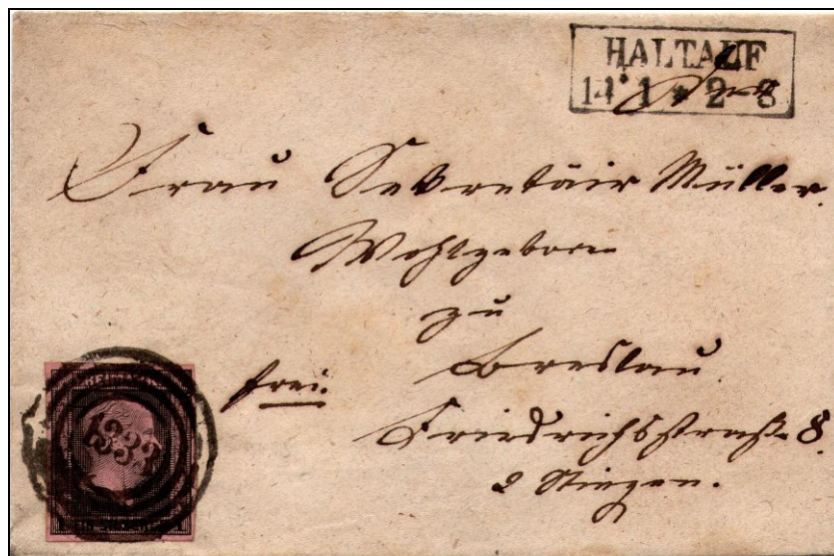 HALTAUF
14 1 * 2-8
Frau Sekretair Müller.
Wohlgeboren
zu
frei. Breslau
Friedrichsstraße 8.
2 Stiegen.